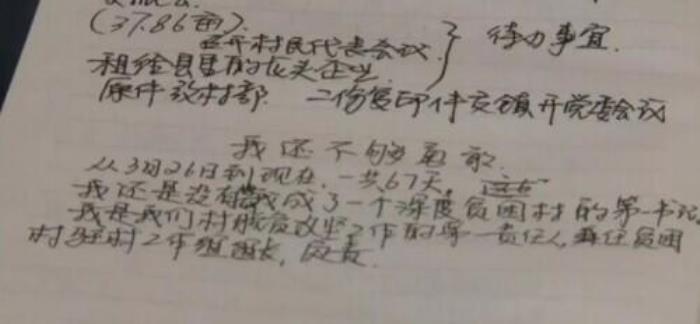 (37.86亩).
召开村民代表会议. } 待办事宜.
租给县里的龙头企业
原件放村部. 二份复印件交镇开党委会议
我还不够勇敢.
从3月26日到现在,一共67天。这
我还是没有 成了一个深度贫困村的第一书记,
我是我们村脱贫攻坚工作的第一责任人,兼任贫困
村驻村工作组组长,负责